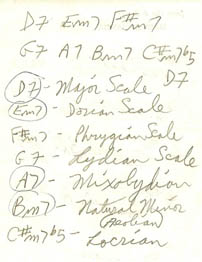 D7 Em7 F#m7
G7 A7 Bm7 C#m7b5
D7
D7 - Major Scale
Em7 - Dorian Scale
F#m7 - Phrygian Scale
G7 - Lydian Scale
A7 - Mixolydion
Bm7 - Natural Minor
Aeolian
C#m7b5 - Locrian